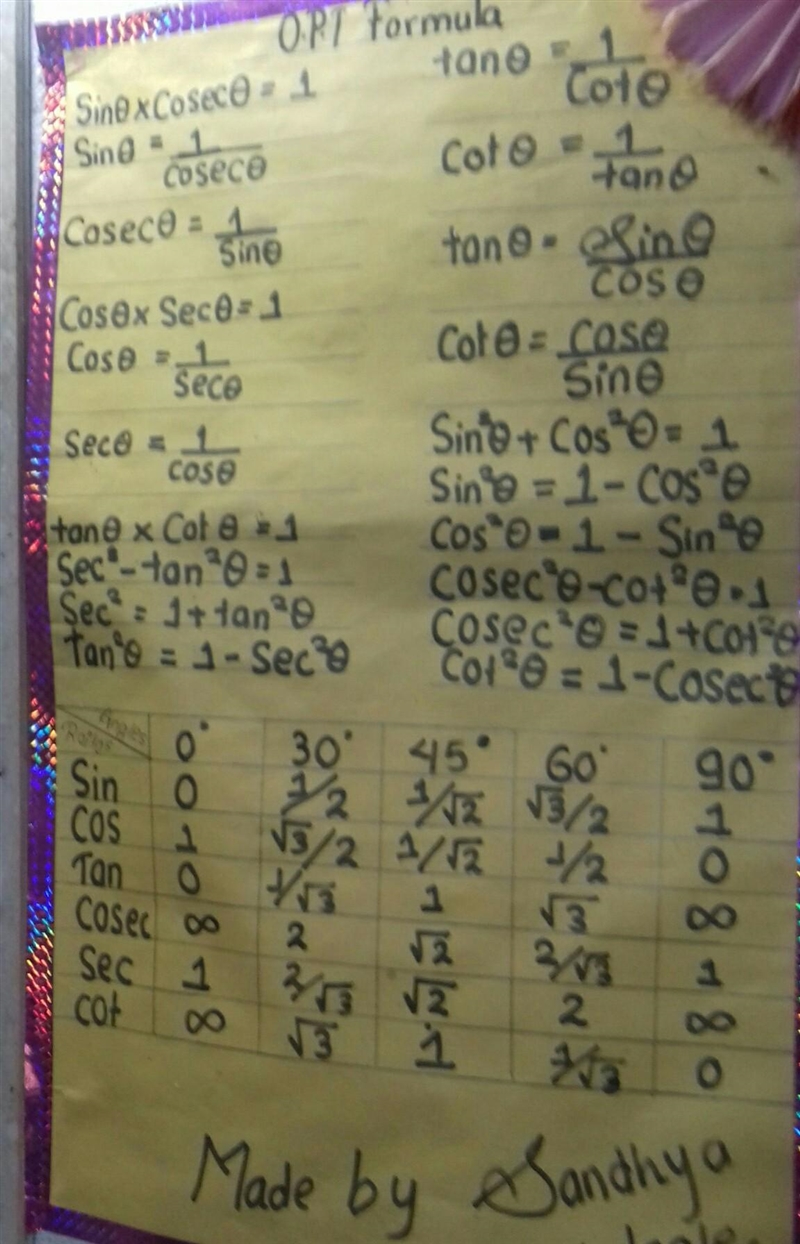 O.P.T Formula
Sinθ x Cosecθ = 1
Sinθ = 1/cosecθ
Cosecθ = 1/Sinθ
Cosθ x Secθ = 1
Cosθ = 1/Secθ
Secθ = 1/cosθ
tanθ x Cotθ = 1
Sec² - tan²θ = 1
Sec² = 1 + tan²θ
tan²θ = 1 - Sec²θ
tanθ = 1/Cotθ
Cotθ = 1/tanθ
tanθ = Sinθ/Cosθ
Cotθ = Cosθ/Sinθ
Sin²θ + Cos²θ = 1
Sin²θ = 1 - Cos²θ
Cos²θ = 1 - Sin²θ
Cosec²θ - cot²θ = 1
Cosec²θ = 1 + Cot²θ
Cot²θ = 1 - Cosec²θ
Angles
Ratios 0° 30° 45° 60° 90°
Sin 0 1/2 1/√2 √3/2 1
Cos 1 √3/2 1/√2 1/2 0
Tan 0 1/√3 1 √3 ∞
Cosec ∞ 2 √2 2/√3 1
Sec 1 2/√3 √2 2 ∞
Cot ∞ √3 1 1/√3 0
Made by Sandhya